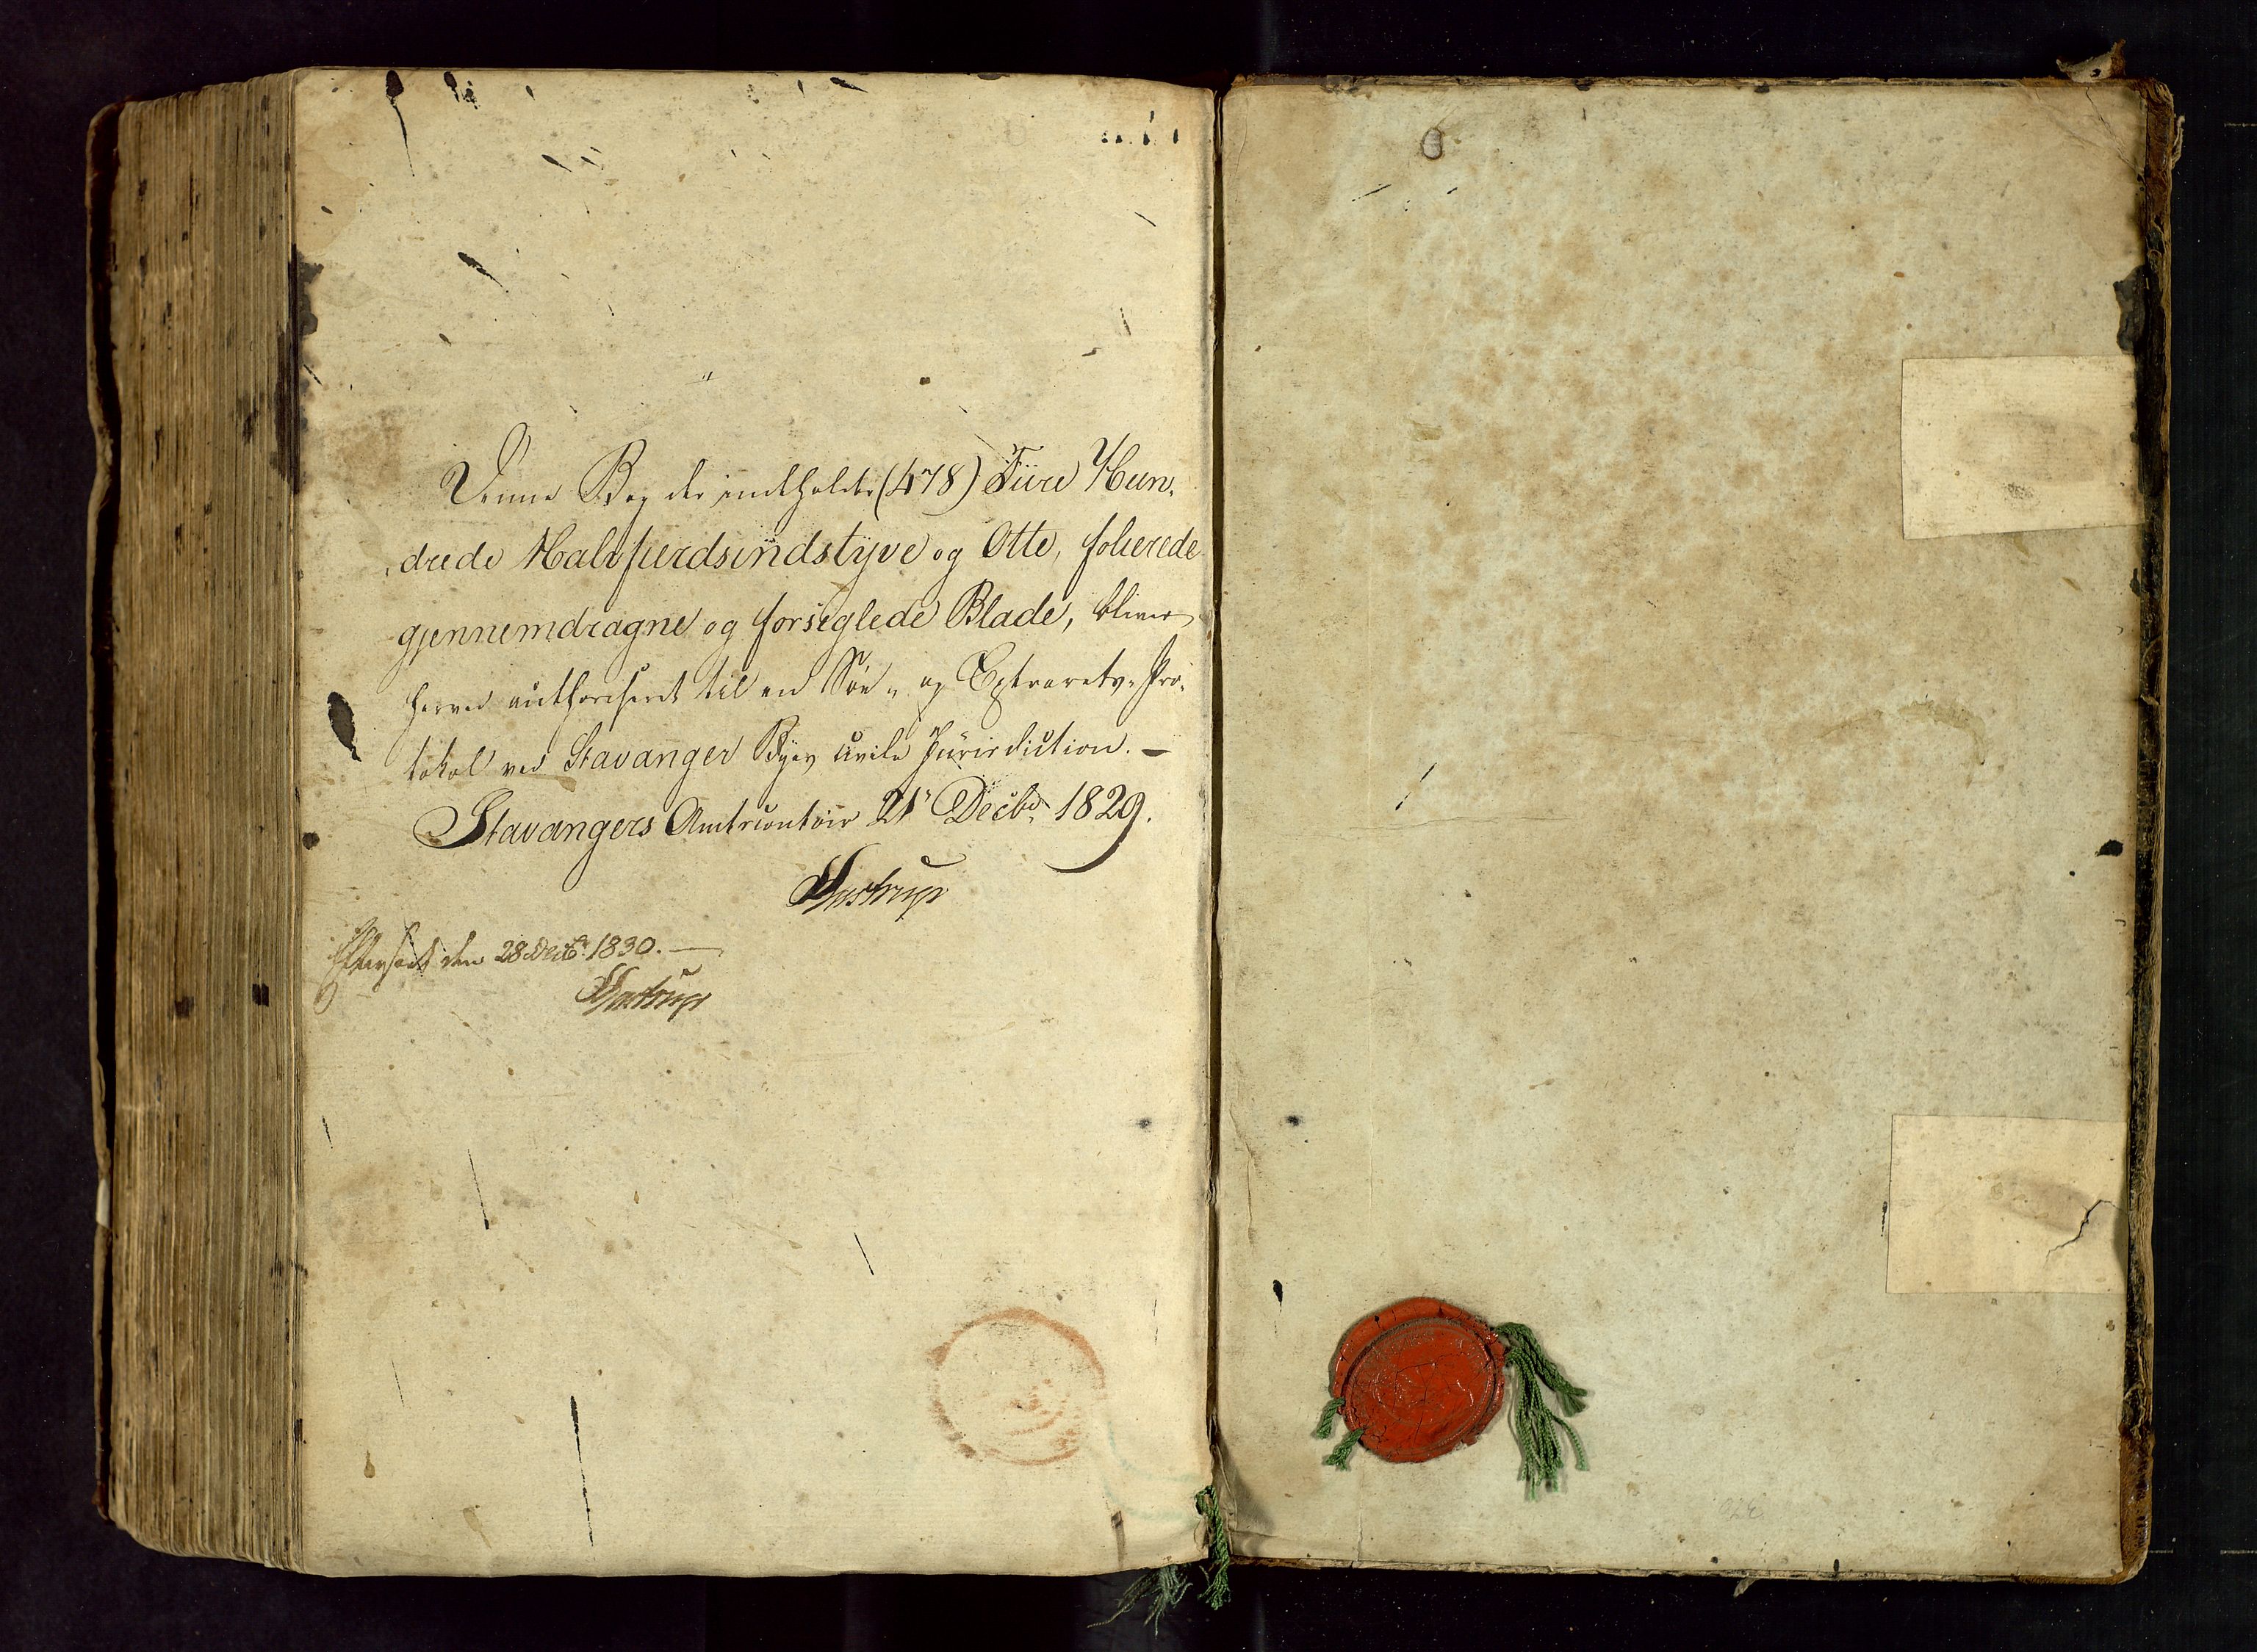 Denne Bog der indeholder (478) Fiire Hun-
drede Halvfierdsindstyve og Otte, folierede
gjennemdragne og forseglede Blade, bliver
herved authoriseret til en Søe- og Extrarets-Pro-
tokol ved Stavanger Byes civile Jurisdiction. —
Stavangers Amtscontoir 21 Decbr. 1829.
Aastrup
Efterseet den 28 Decbr. 1830. —
Aastrup